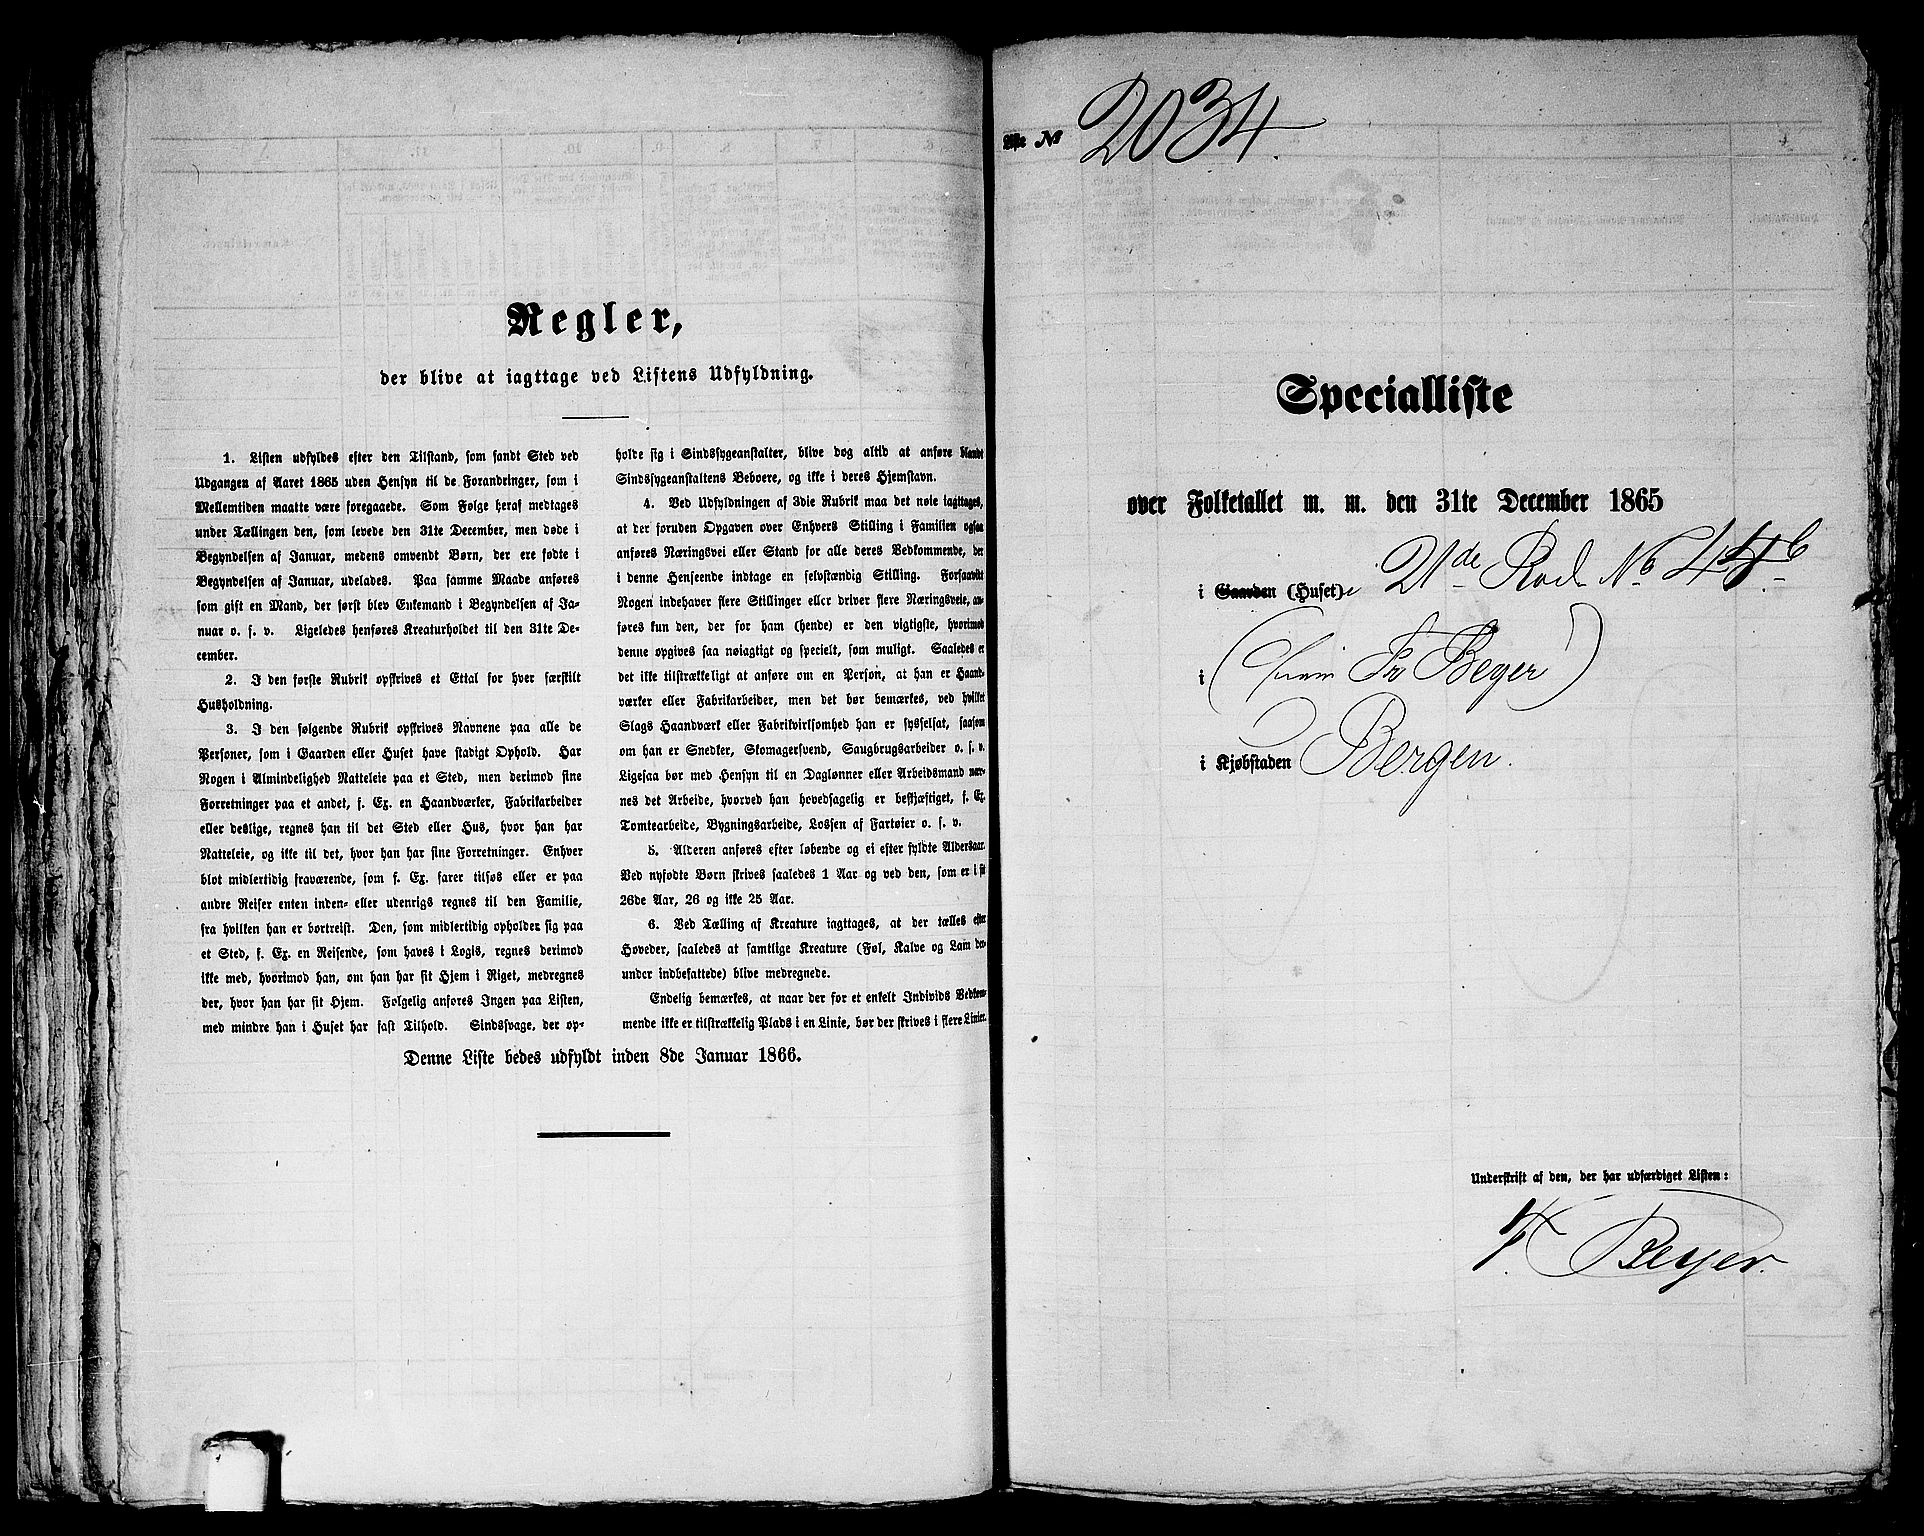 Regler,
der blive at iagttage ved Listens Udfyldning.
1. Listen udfyldes efter den Tilstand, som fandt Sted ved
Udgangen af Aaret 1865 uden Hensyn til de Forandringer, som i
Mellemtiden maatte være foregaaede. Som Følge heraf medtages
under Tællingen den, som levede den 31te December, men døde i
Begyndelsen af Januar, medens omvendt Børn, der ere fødte i
Begyndelsen af Januar, udelades. Paa samme Maade anføres
som gift en Mand, der først blev Enkemand i Begyndelsen af Ja-
nuar o. s. v. Ligeledes henføres Kreaturholdet til den 31te De-
cember.
2. I den første Rubrik opskrives et Ettal for hver særskilt
Husholdning.
3. I den følgende Rubrik opskrives Navnene paa alle de
Personer, som i Gaarden eller Huset have stadigt Ophold. Har
Nogen i Almindelighed Natteleie paa et Sted, men derimod sine
Forretninger paa et andet, f. Ex. en Haandværker, Fabrikarbeider
eller deslige, regnes han til det Sted eller Hus, hvor han har
Natteleie, og ikke til det, hvor han har sine Forretninger. Enhver
blot midlertidig fraværende, som f. Ex. farer tilsøs eller er paa
andre Reiser enten inden- eller udenrigs regnes til den Familie,
fra hvilken han er bortreist. Den, som midlertidig opholder sig paa
et Sted, f. Ex. en Reisende, som haves i Logis, regnes derimod
ikke med, hvorimod han, om han har sit Hjem i Riget, medregnes
der, hvor han har sit Hjem. Følgelig anføres Ingen paa Listen,
med mindre han i Huset har fast Tilhold. Sindssvage, der op-
holde sig i Sindssygeanstalter, blive dog altid at anføre blandt
Sindssygeanstaltens Beboere, og ikke i deres Hjemstavn.
4. Ved Udfyldningen af 3die Rubrik maa det nøie iagttages,
at der foruden Opgaven over Enhvers Stilling i Familien ogsaa
anføres Næringsvei eller Stand for alle deres Vedkommende, der
i denne Henseende indtage en selvstændig Stilling. Forsaavidt
Nogen indehaver flere Stillinger eller driver flere Næringsveie, an-
føres kun den, der for ham (hende) er den vigtigste, hvorimod
denne opgives saa nøiagtigt og specielt, som muligt. Saaledes er
det ikke tilstrækkeligt at anføre om en Person, at han er Haand-
værker eller Fabrikarbeider, men det bør bemærkes, ved hvilket
Slags Haandværk eller Fabrikvirksomhed han er sysselsat, saasom
om han er Snedker, Skomagersvend, Saugbrugsarbeider o. s. v.
Ligesaa bør med Hensyn til en Daglønner eller Arbeidsmand næv-
nes det Arbeide, hvorved han hovedsagelig er beskjæftiget, f. Ex.
Tomtearbeide, Bygningsarbeide, Lossen af Fartøier o. s. v.
5. Alderen anføres efter løbende og ei efter fyldte Aldersaar.
Ved nyfødte Børn skrives saaledes 1 Aar og ved den, som er i sit
26de Aar, 26 og ikke 25 Aar.
6. Ved Tælling af Kreature iagttages, at der tælles efter
Hoveder, saaledes at samtlige Kreature (Føl, Kalve og Lam der-
under indbefattede) blive medregnede.
Endelig bemærkes, at naar der for et enkelt Individs Vedkom-
mende ikke er tilstrækkelig Plads i en Linie, bør der skrives i flere Linier.
Denne Liste bedes udfyldt inden 8de Januar 1866.
№ 2034.
Specialliste
over Folketallet m. m. den 31te December 1865
i Gaarden (Huset) 21de Rode No 44b
i ( Fr Beyer )
i Kjøbstaden Bergen.
Underskrift af den, der har udfærdiget Listen:
F. Beyer.